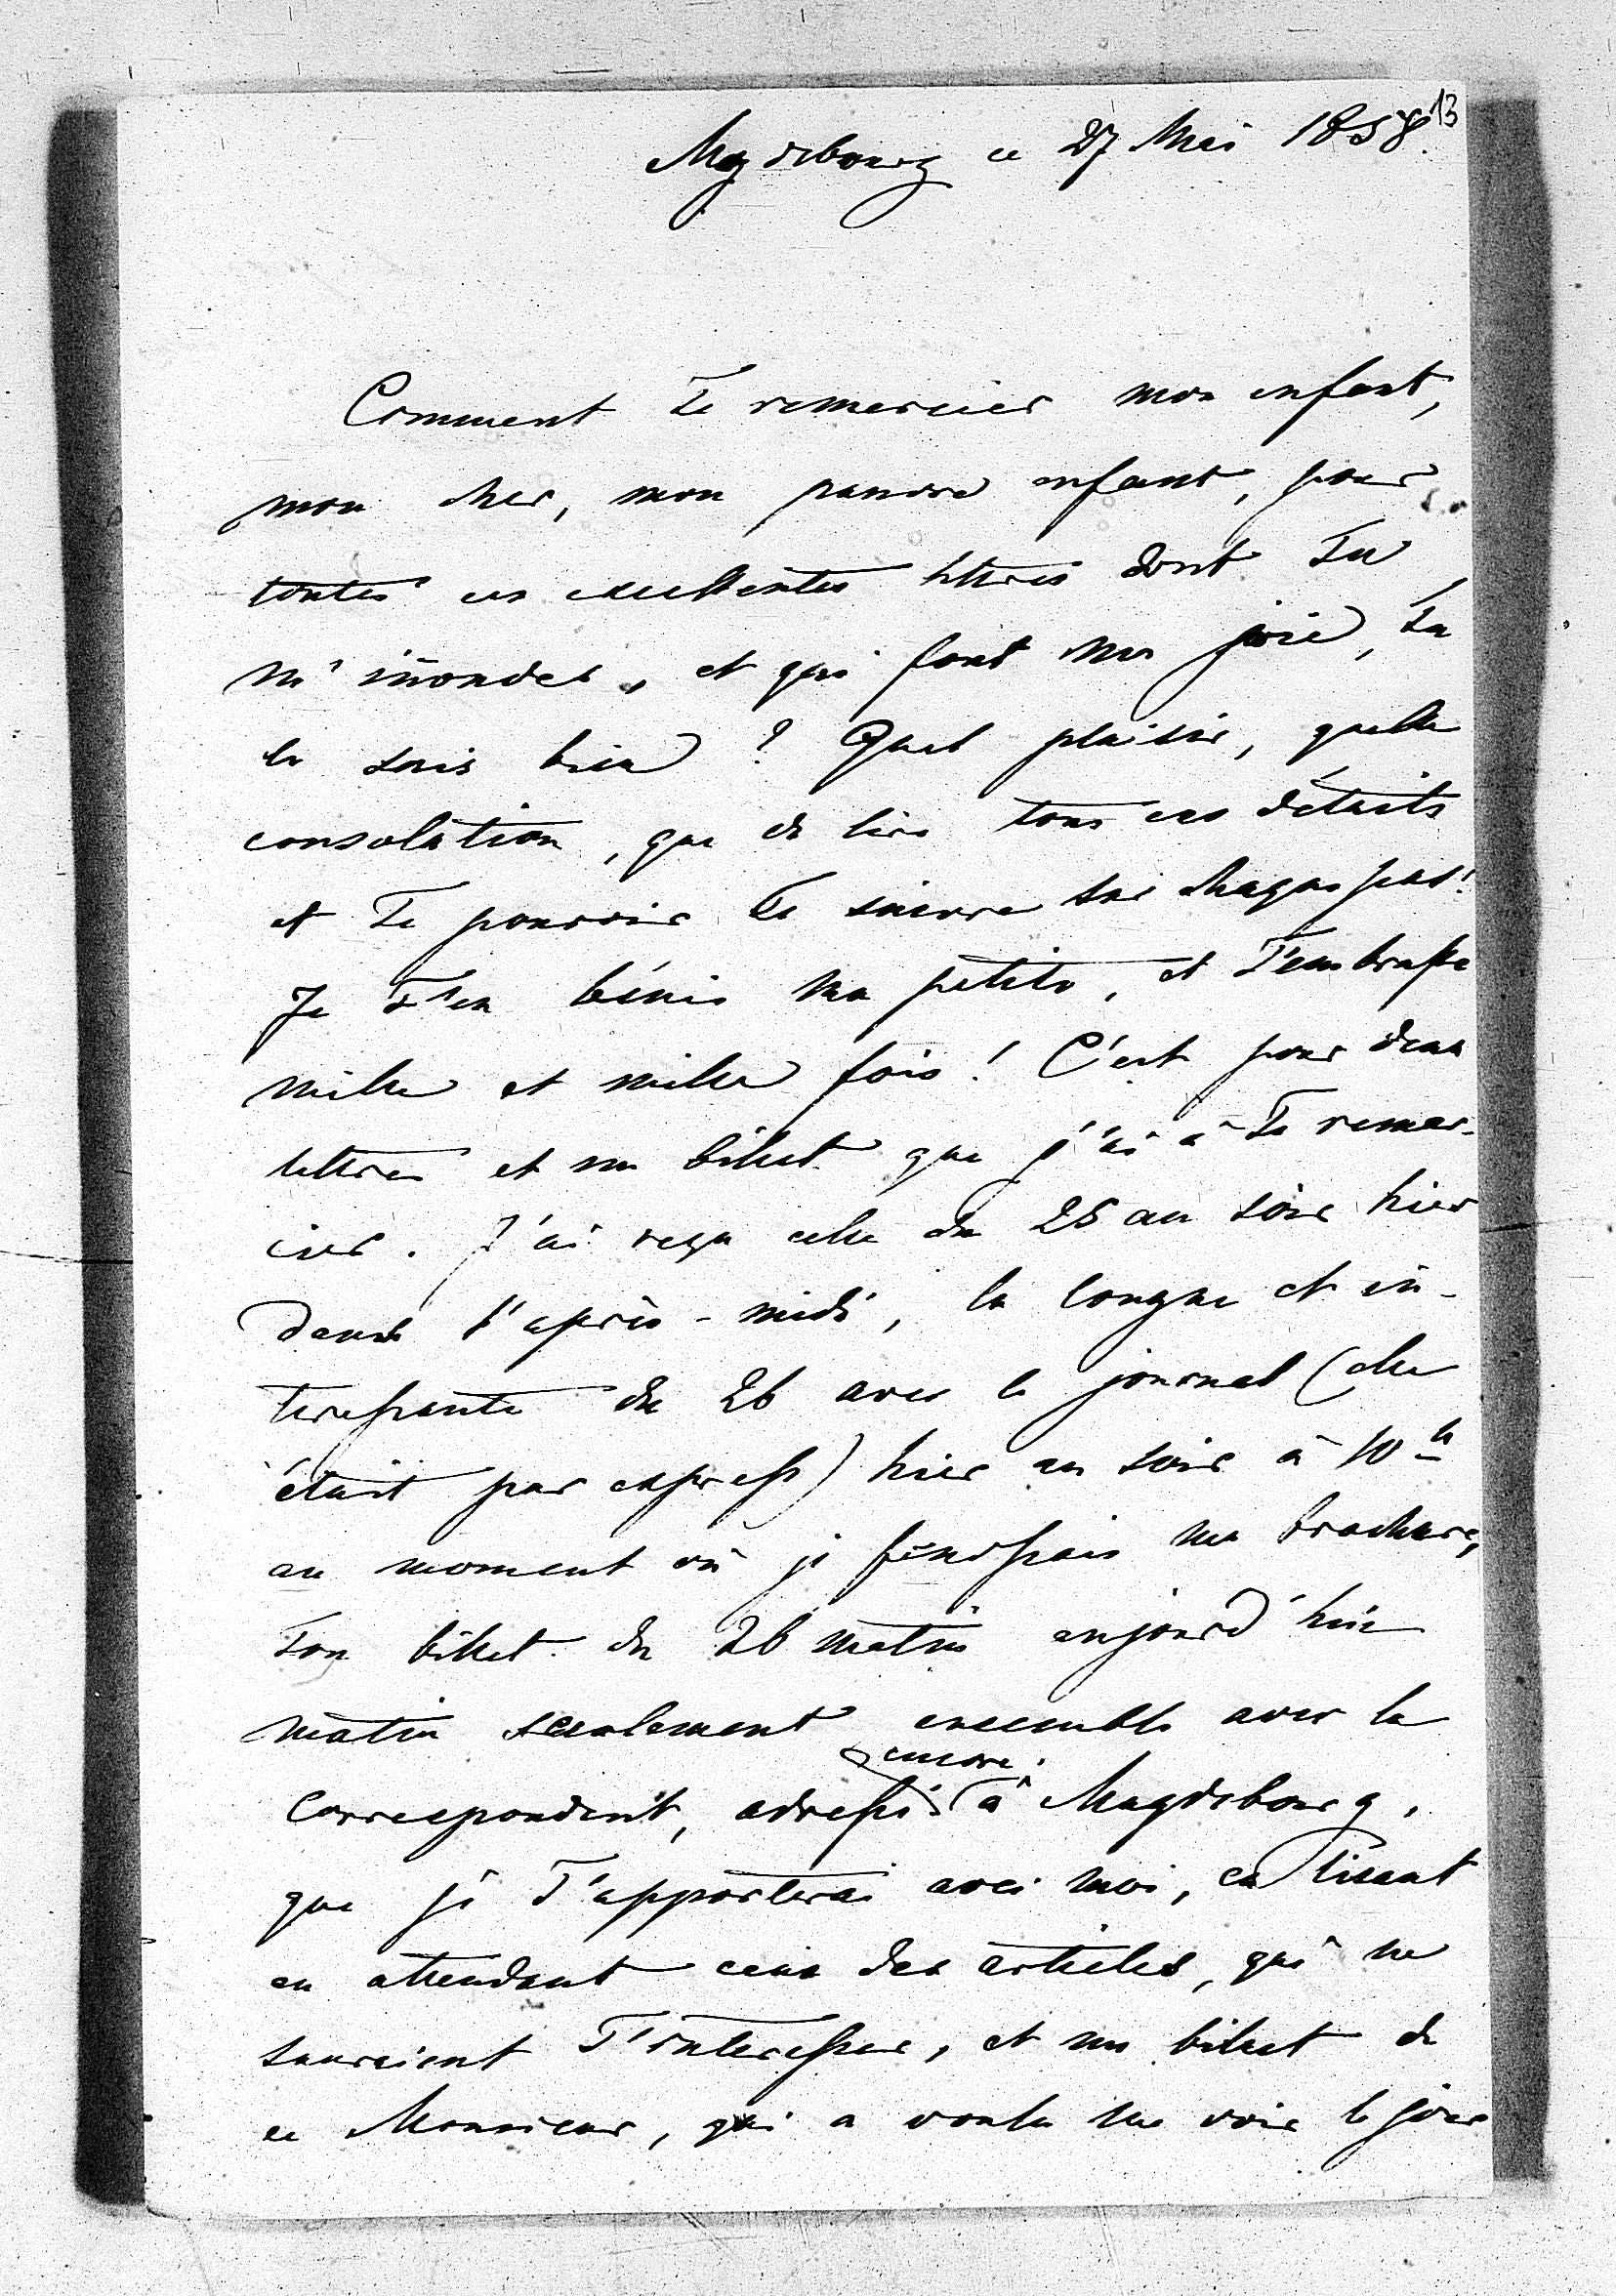 13
Magdebourg ce 27 Mai 1858.
Comment Te remercier mon enfant,
mon cher, mon pauvre enfant, pour
toutes ces excellentes lettres dont Tu
m'inondes, et qui font ma joie, Tu
le sais bien? Quel plaisir, quelle
consolation, que de lire tous ces détails
et de pouvoir Te suivre sur chaque pas!
Je T'en bénis ma petite, et T'embrasse
mille et mille fois! C'est pour deux
lettres et un billet que j'ai à Te remer-
cier. J'ai reçu celle du 25 au soir hier
dans l'après-midi, la longue et in-
teressante du 26 avec le journal (elle
était par express) hier au soir à 10 h
au moment où je finissais ma brochure,
Ton billet du 26 matin aujourd'hui
matin seulement ensemble avec le
encore
Correspondent, adressé à Magdebourg,
que je T'apporterai avec moi, en lisant
en attendant ceux des articles, qui ne
sauraient T'interesser, et un billet de
ce Monsieur, qui a voulu me voir le jour